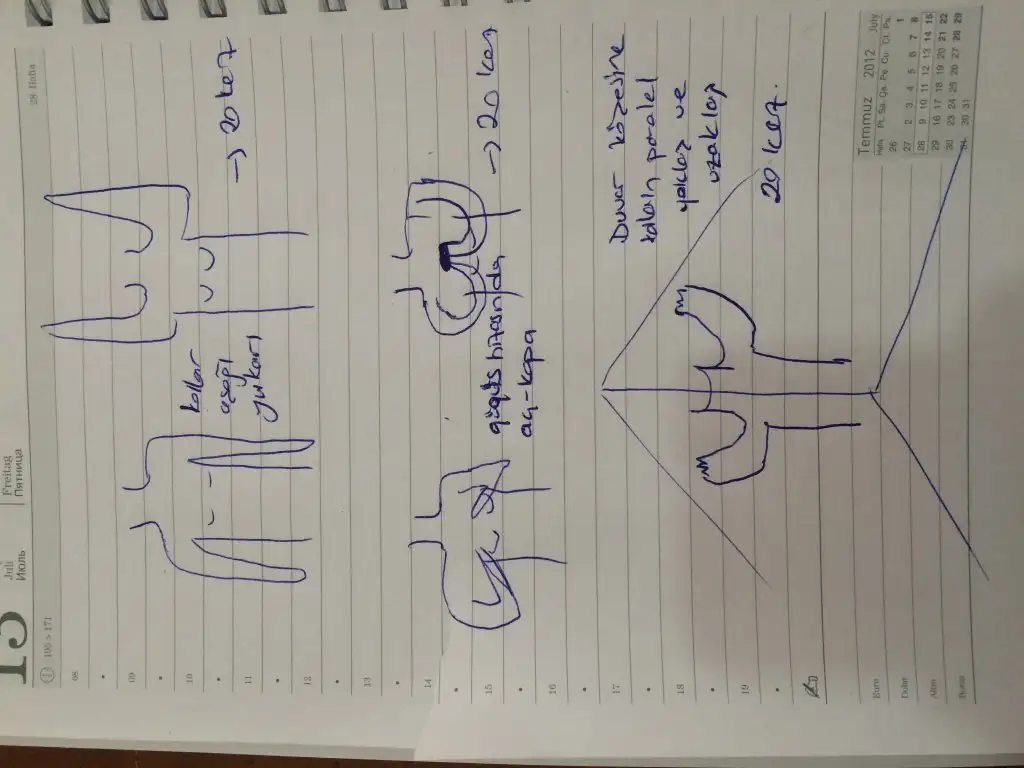 13
Juli
Июль
Freitag
Пятница
195 > 171
28 Hafta
08
09
10
11
12
13
14
15
16
17
18
19
kollar
aşağı
yukarı
→ 20 kez
göğüs hizasında
aç-kapa
→ 20 kez
Duvar köşesine
kolların paralel
yaklaş ve
uzaklaş
20 kez.
Euro
Dolar
Altın
Borsa
Temmuz 2012 July
Hafta Pt. Sa. Ça. Pe. Cu. Ct. Pa.
26 1
27 2 3 4 5 6 7 8
28 9 10 11 12 13 14 15
29 16 17 18 19 20 21 22
30 23 24 25 26 27 28 29
31 30 31